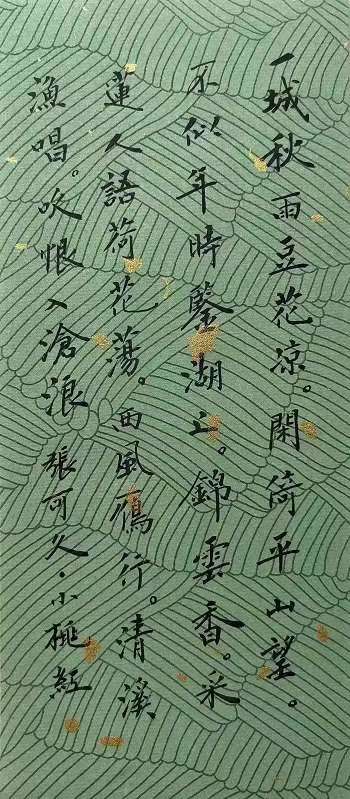 一城秋雨豆花凉。閑倚平山望。
不似年時鑒湖上。錦雲香。采
蓮人語荷花蕩。西風鴈行。清溪
漁唱。吹恨入滄浪 張可久·小桃紅